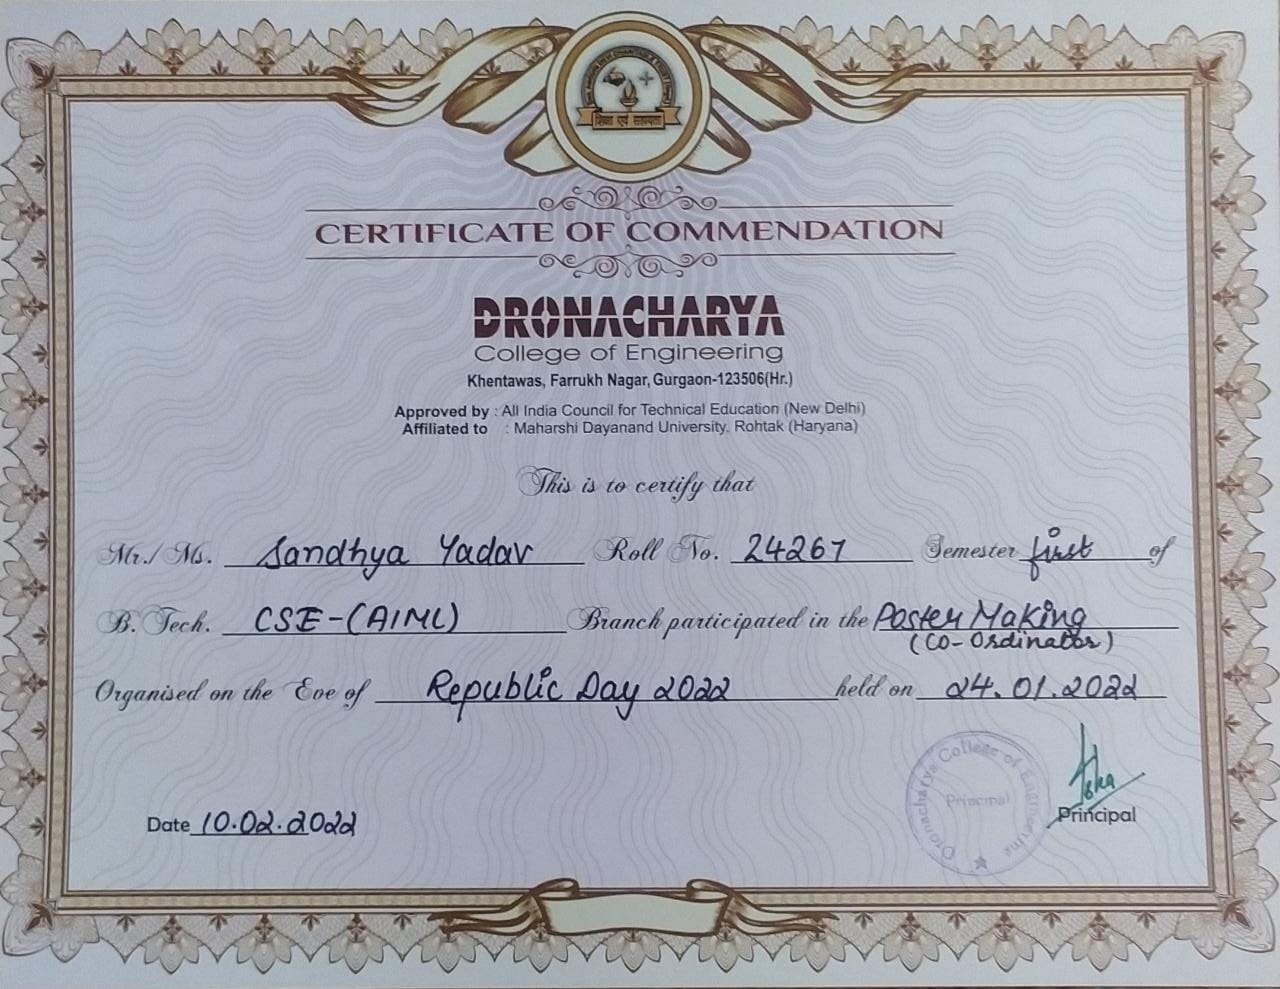 शिक्षा एवं सहायता
CERTIFICATE OF COMMENDATION
DRONACHARYA
College of Engineering
Khentawas, Farrukh Nagar, Gurgaon-123506(Hr.)
Approved by : All India Council for Technical Education (New Delhi)
Affiliated to : Maharshi Dayanand University, Rohtak (Haryana)
This is to certify that
Mr./ Ms. Sandhya Yadav Roll No. 24267 Semester first of
B. Tech. CSE-(AIML) Branch participated in the Poster Making
(Co-Ordinator)
Organised on the Eve of Republic Day 2022 held on 24.01.2022
Dronacharya College of Engineering
Principal
Date 10.02.2022
Principal